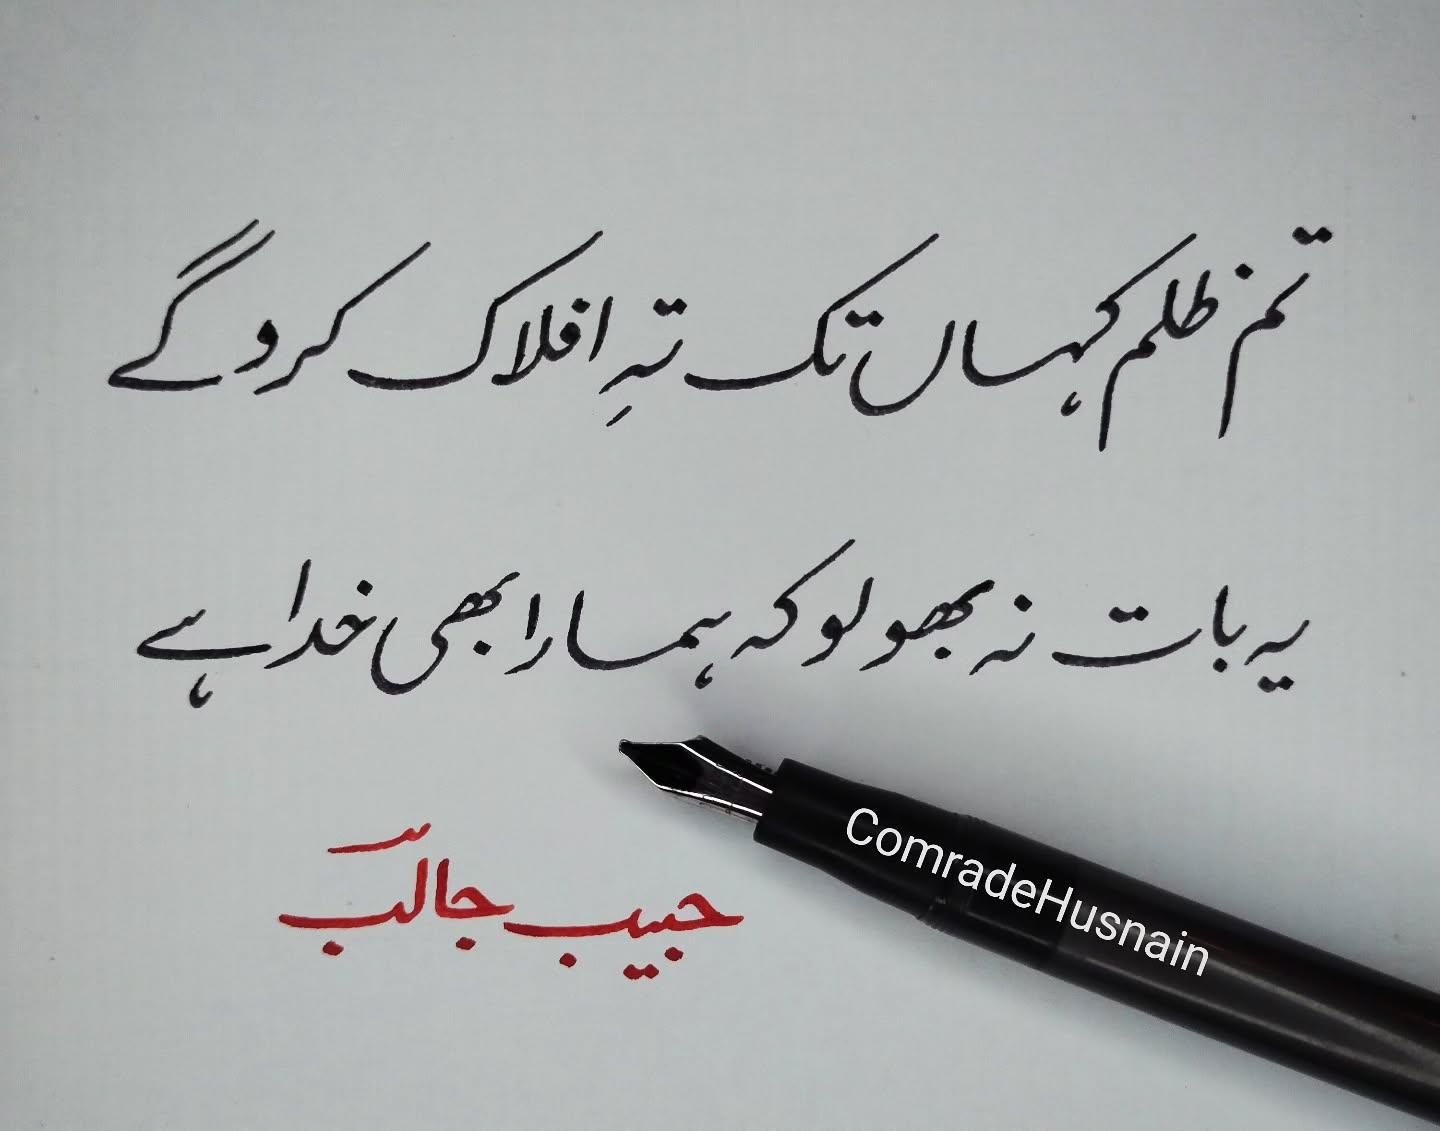 تم ظلم کہاں تک تہِ افلاک کرو گے
یہ بات نہ بھولو کہ ہمارا بھی خدا ہے
حبیب جالبؔ
ComradeHusnain